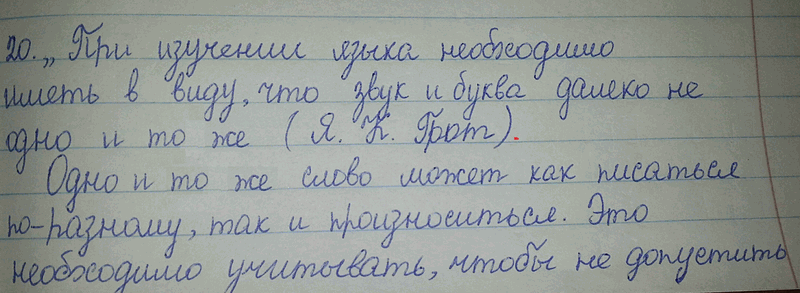 20. „ При изучении языка необходимо
иметь в виду, что звук и буква далеко не
одно и то же (Я. К. Грот).
Одно и то же слово может как писаться
по-разному, так и произноситься. Это
необходимо учитывать, чтобы не допустить